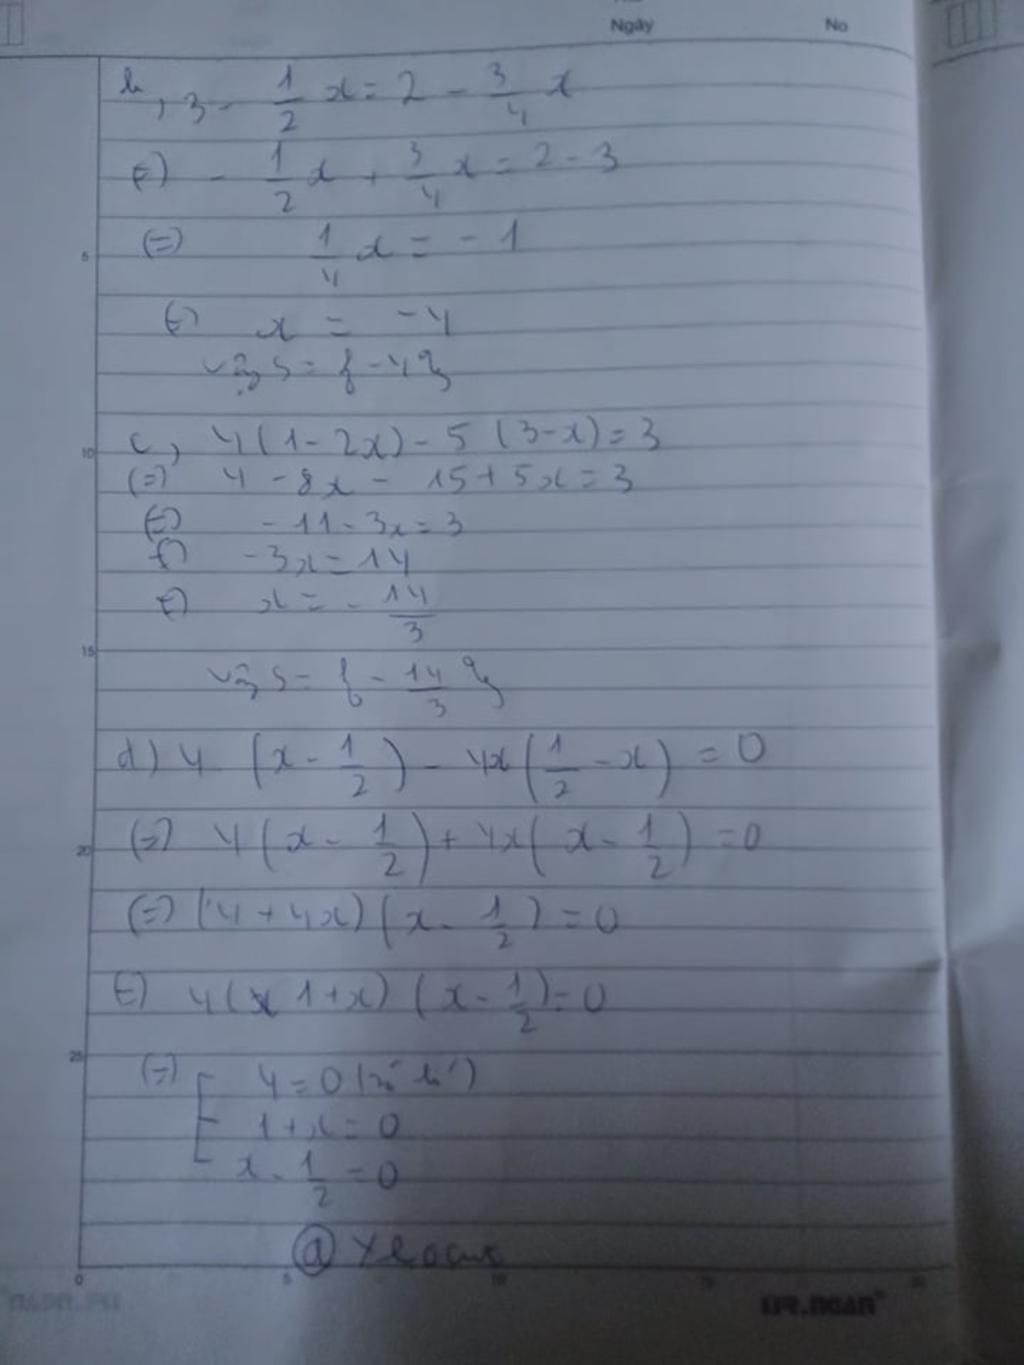 Ngày No
b, 3 - 1/2 x = 2 - 3/4 x
(=) - 1/2 x + 3/4 x = 2 - 3
(=) 1/4 x = - 1
(=) x = - 4
Vậy S = { - 4 }
c, 4 ( 1 - 2x ) - 5 ( 3 - x ) = 3
(=) 4 - 8x - 15 + 5x = 3
(=) - 11 - 3x = 3
(=) - 3x = 14
(=) x = - 14/3
Vậy S = { - 14/3 }
d ) 4 ( x - 1/2 ) - 4x ( 1/2 - x ) = 0
(=) 4 ( x - 1/2 ) + 4x ( x - 1/2 ) = 0
(=) ( 4 + 4x ) ( x - 1/2 ) = 0
(=) 4 ( 1 + x ) ( x - 1/2 ) = 0
(=) [ 4 = 0 (vô lí)
1 + x = 0
x - 1/2 = 0
5
10
15
20
25
0 5 10 15 20